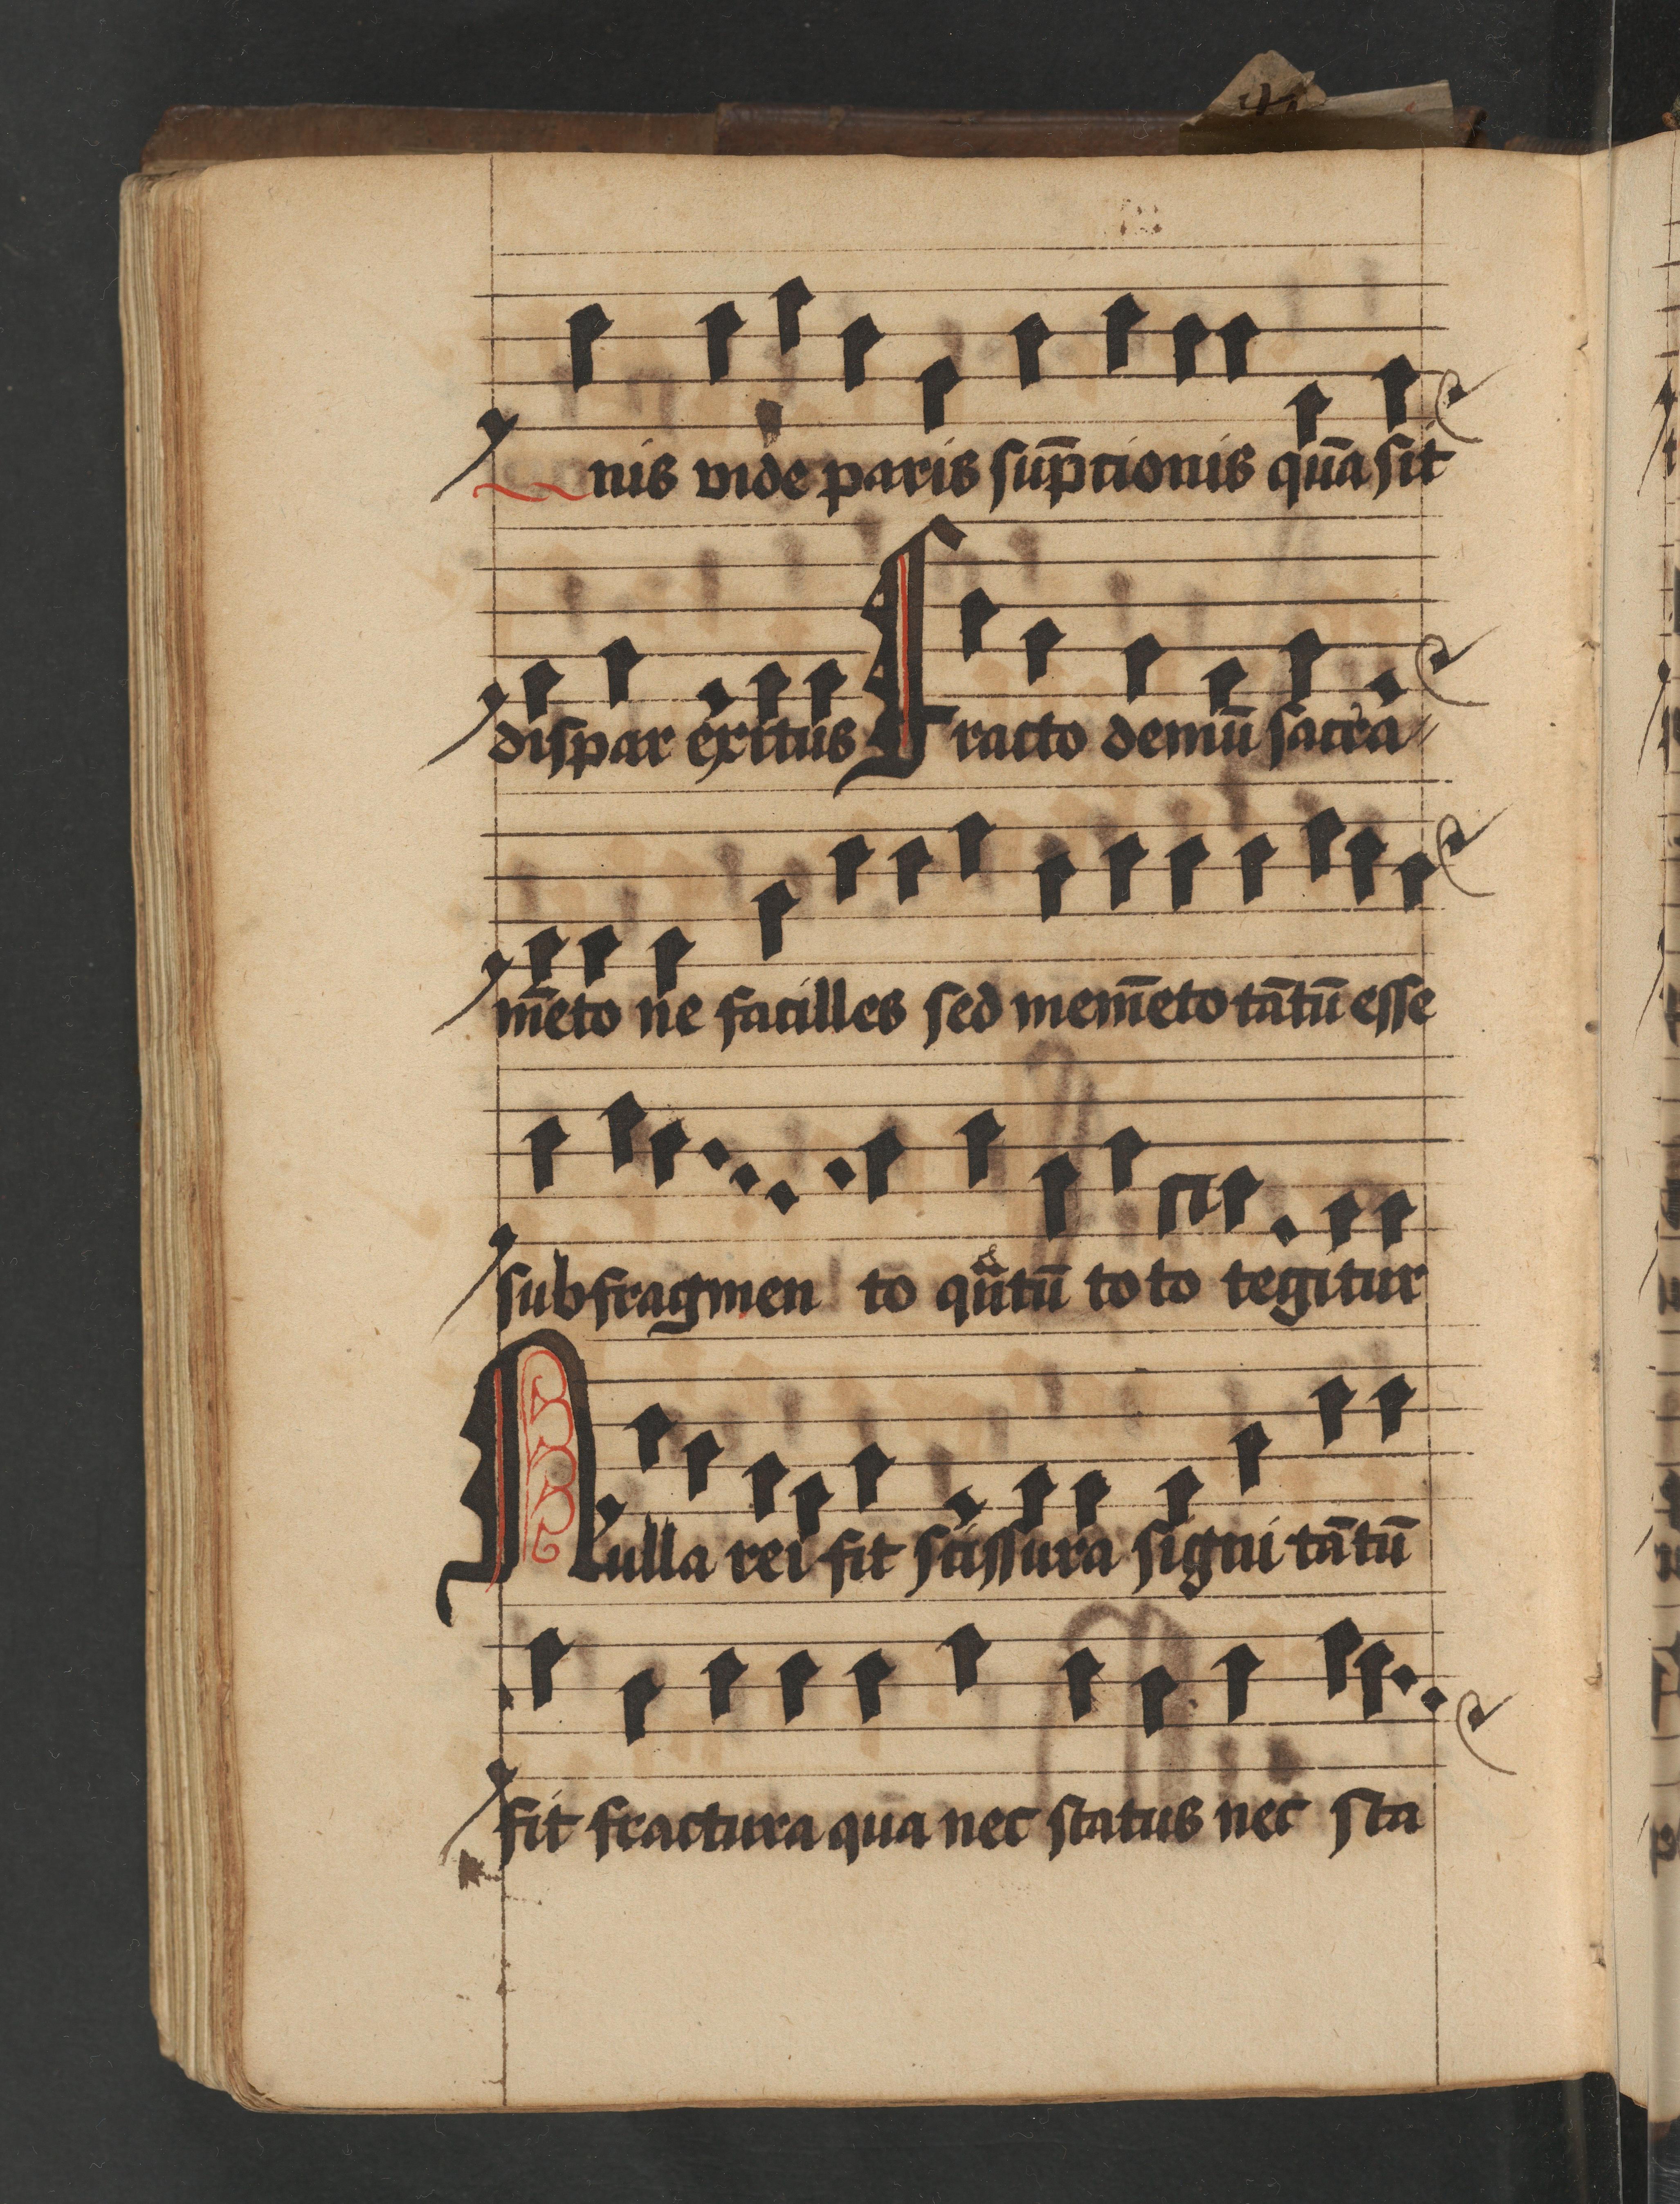 nis vide paris sup̄tionis quā sit
dispar exitus Fracto demū sacra
m̄eto ne facilles sed mem̄eto tātū esse
sub fragmen to qūtū toto tegitur
Nulla rei fit scissura signi tātū
fit fractura qua nec status nec sta